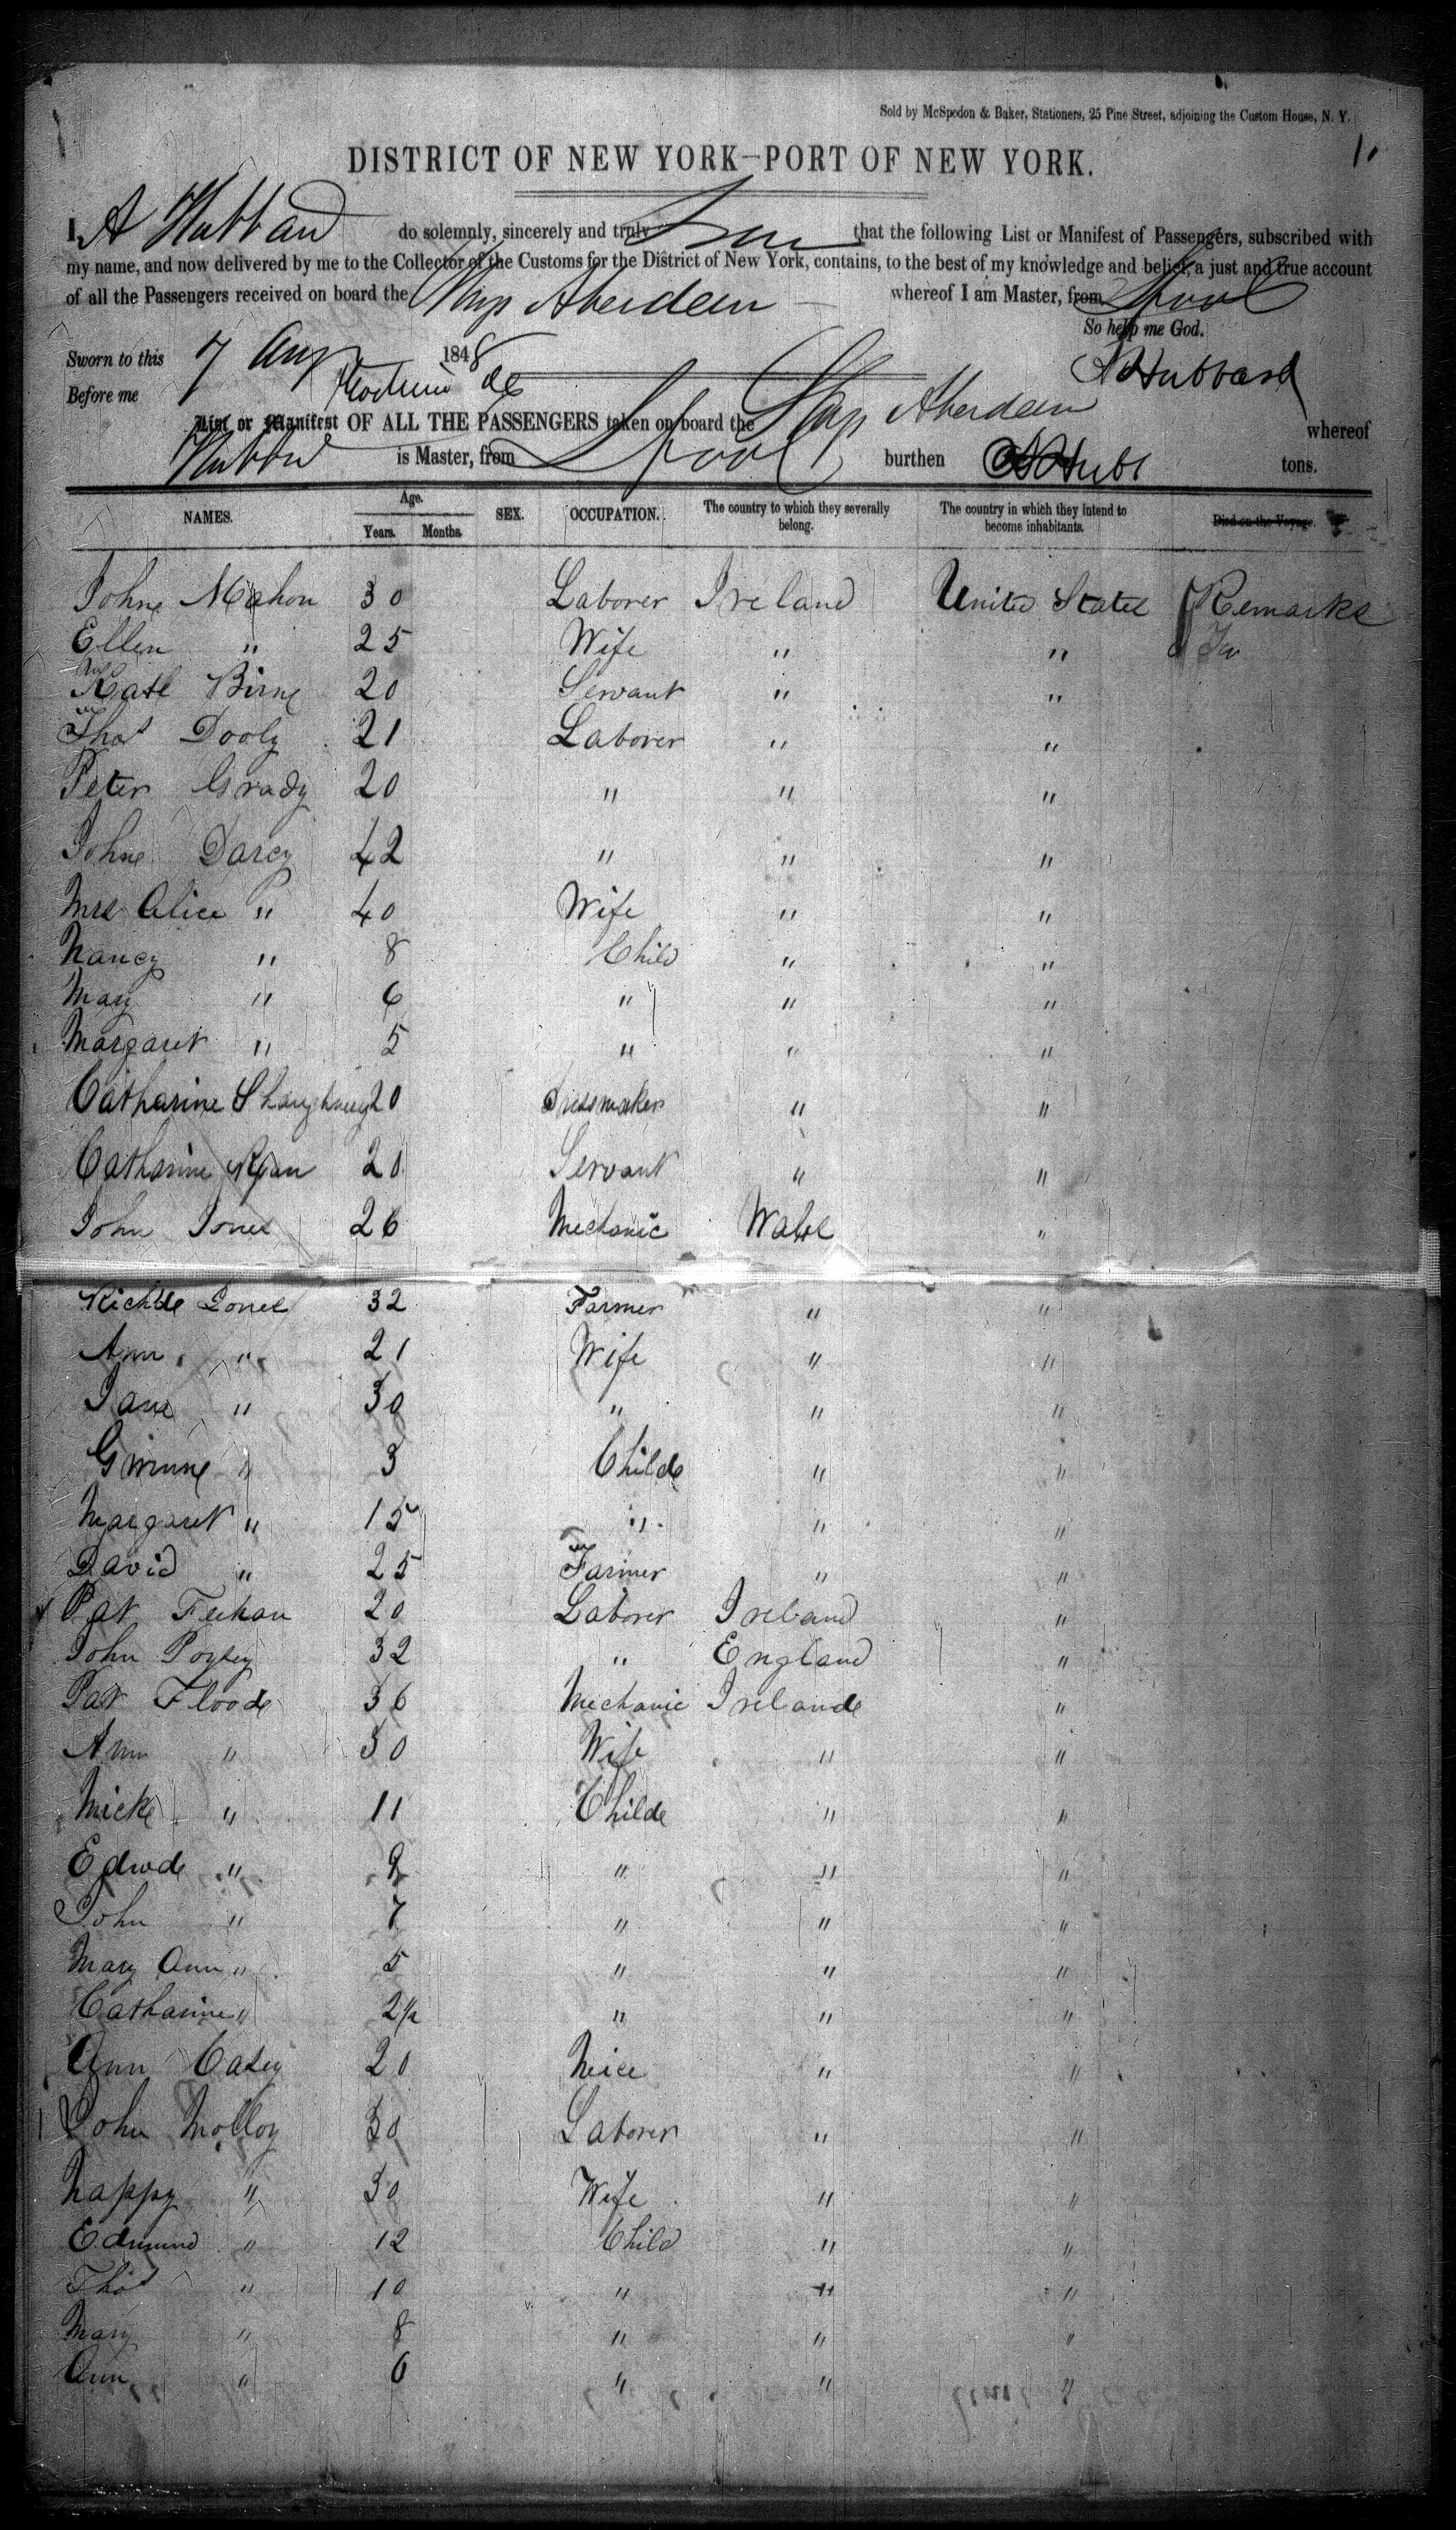 Sold by McSpedon & Baker, Stationers, 25 Pine Street, adjoining the Custom House, N. Y.
1.
DISTRICT OF NEW YORK—PORT OF NEW YORK.
I, A Hubbard do solemnly, sincerely and truly that the following List or Manifest of Passengers, subscribed with
my name, and now delivered by me to the Collector of the Customs for the District of New York, contains, to the best of my knowledge and belief, a just and true account
of all the Passengers received on board the Ship Aberdeen whereof I am Master, from Lpool
So help me God.
Sworn to this 7 Aug 1848
A Hubbard
Before me
List or Manifest OF ALL THE PASSENGERS taken on board the Ship Aberdeen whereof
Hubbard is Master, from Lpool burthen tons.
NAMES. Age. Years. Months. SEX. OCCUPATION. The country to which they severally belong. The country in which they intend to become inhabitants. Died on the Voyage.
Johne Mahon 30 Laborer Ireland United States Remarks
Ellen " 25 Wife " "
Kate Birne 20 Servant " "
Thos Dooly 21 Laborer " "
Peter Grady 20 " " "
Johne Darcy 42 " " "
Mrs Alice " 40 Wife " "
Nancy " 8 Child " "
Mary " 6 " " "
Margaret " 5 " " "
Catharine 20 Dressmaker " "
Catharine Ryan 20 Servant " "
John Jones 26 Mechanic Wales "
Richde Jones 32 Farmer " "
Ann " 21 Wife " "
Jane " 30 " " "
" 3 Childe " "
Margaret " 15 " " "
David " 25 Farmer " "
Pat Feehan 20 Laborer Ireland "
John 32 " England "
Pat Floode 36 Mechanic Irelande "
Ann " 30 Wife " "
Micke " 11 Childe " "
Edwde " 9 " " "
John " 7 " " "
Mary Ann " 5 " " "
Catharine " 2½ " " "
Ann Casey 20 Neice " "
John Molloy 30 Laborer " "
Nappy " 30 Wife " "
Edmund " 12 Child " "
Thos " 10 " " "
Mary " 8 " " "
Ann " 6 " " "